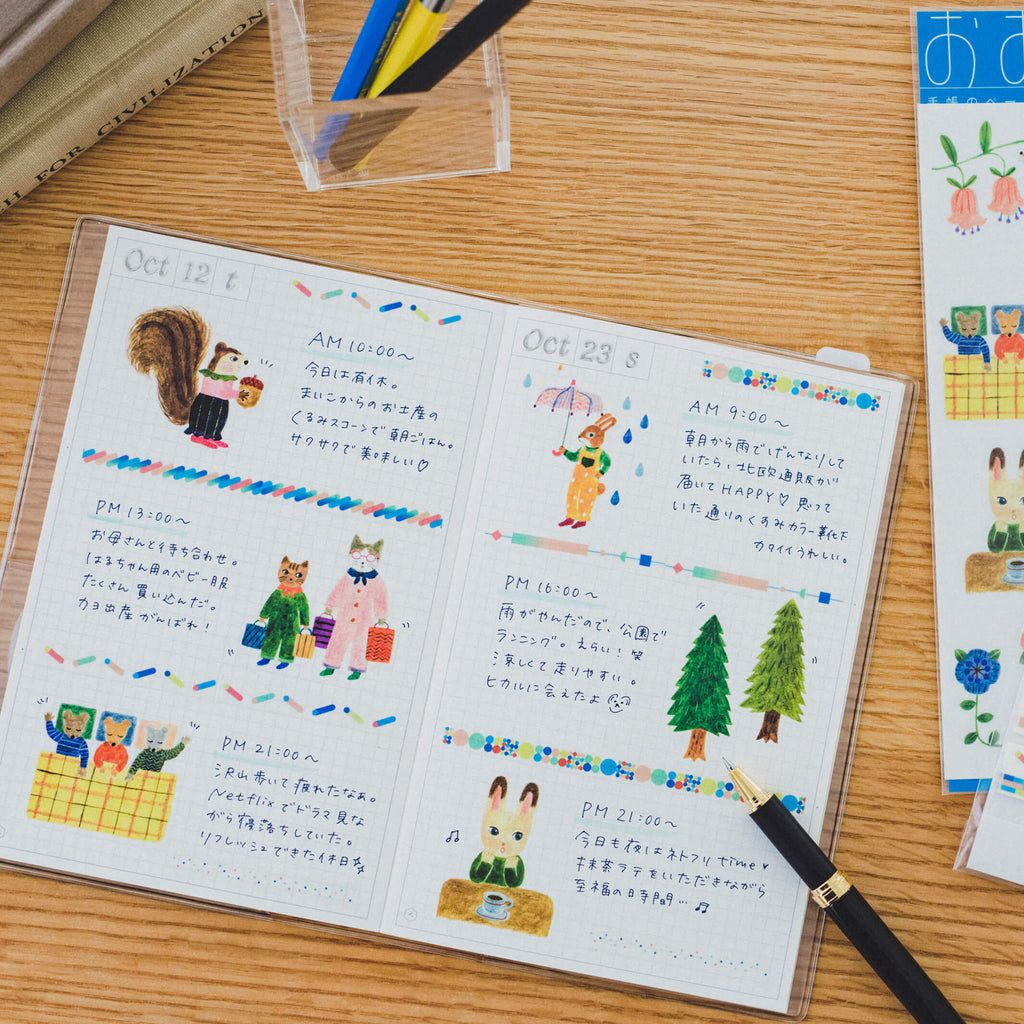 H FOR CIVILIZATION
おお
手帳のペー
Oct 12 t
AM 10:00〜
今日は有休。
まいこからのお土産の
くるみスコーンで朝ごはん。
サクサクで美味しい♡
PM 13:00〜
お母さんと待ち合わせ。
はるちゃん用のベビー服
たくさん買い込んだ。
カヨ出産がんばれ!
PM 21:00〜
沢山歩いて疲れたなぁ。
Netflixでドラマ見な
がら寝落ちしていた。
リフレッシュできた休日☆
Oct 23 s
AM 9:00〜
朝から雨でげんなりして
いたら、北欧通販が
届いてHAPPY♡思って
いた通りのくすみカラー靴下
カワイイうれしい。
PM 16:00〜
雨がやんだので、公園で
ランニング。えらい!笑
涼しくて走りやすい。
ヒカルに会えたよ
PM 21:00〜
今日も夜はネトフリtime♥
抹茶ラテをいただきながら
至福の日時間…♫